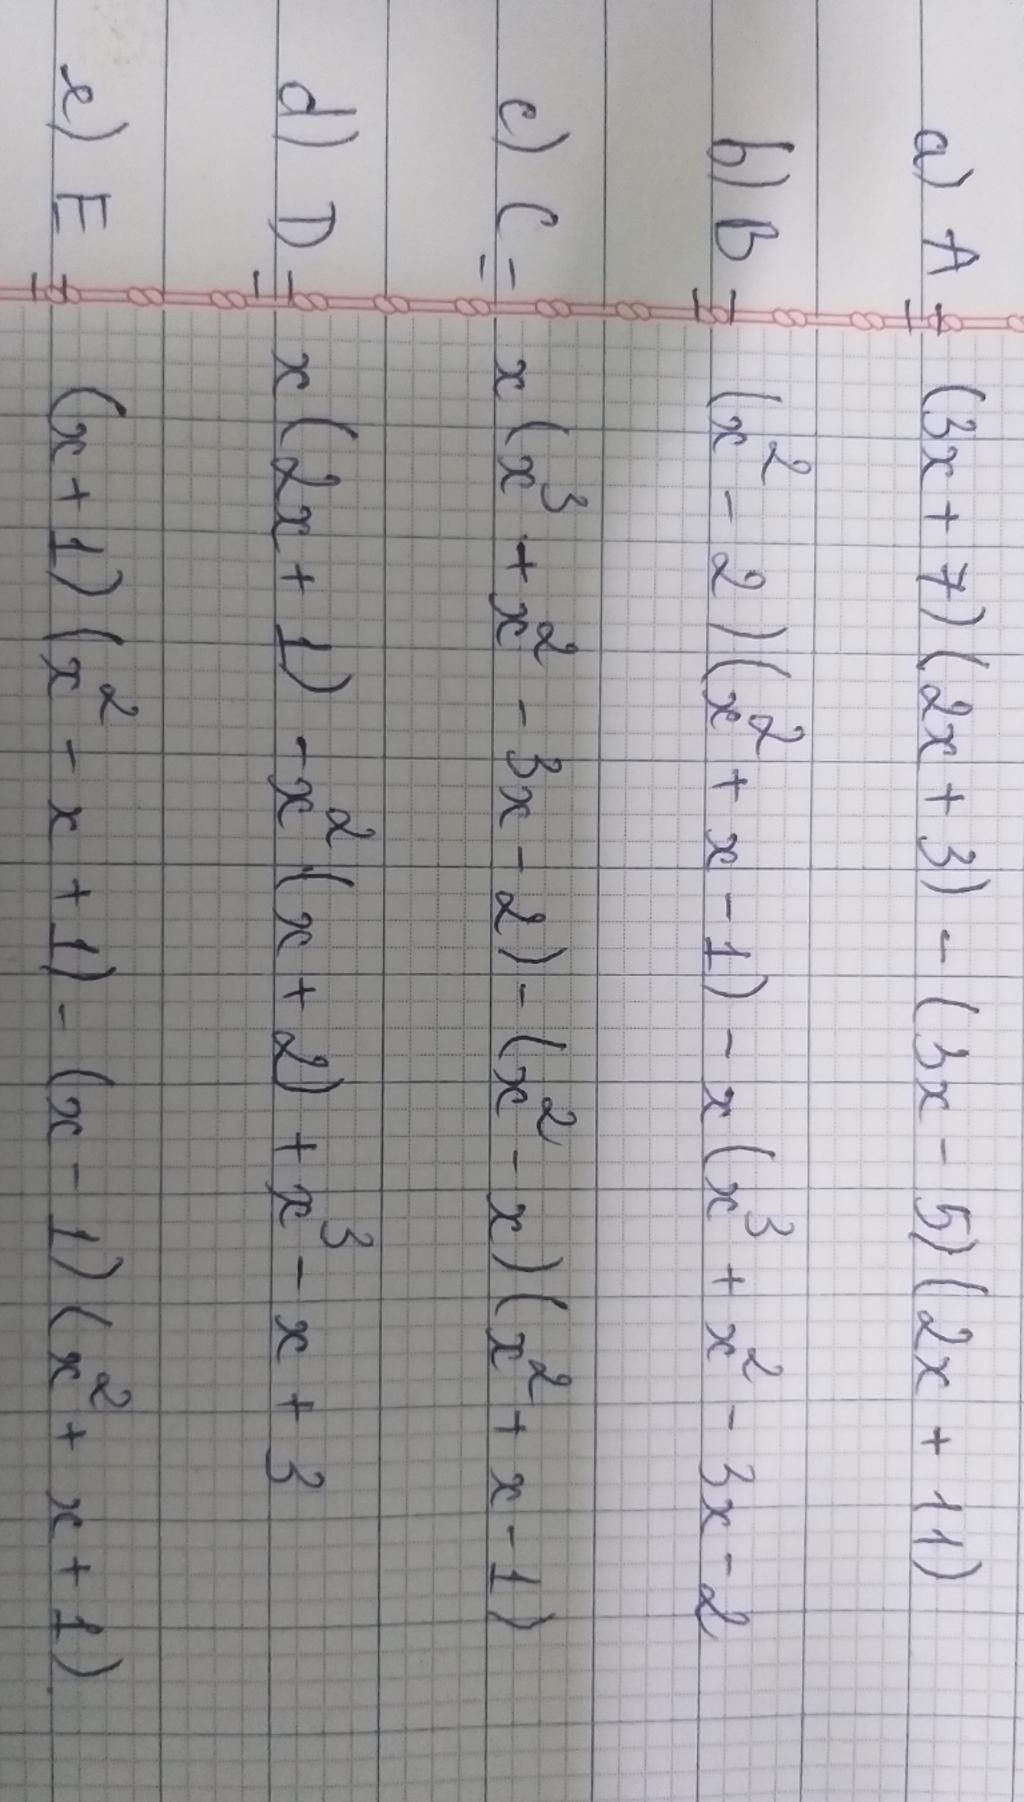 a) A = (3x + 7)(2x + 3) - (3x - 5)(2x + 11)
b) B = (x² - 2)(x² + x - 1) - x(x³ + x² - 3x - 2
c) C = x(x³ + x² - 3x - 2) - (x² - x)(x² + x - 1)
d) D = x(2x + 1) - x²(x + 2) + x³ - x + 3
e) E = (x + 1)(x² - x + 1) - (x - 1)(x² + x + 1)